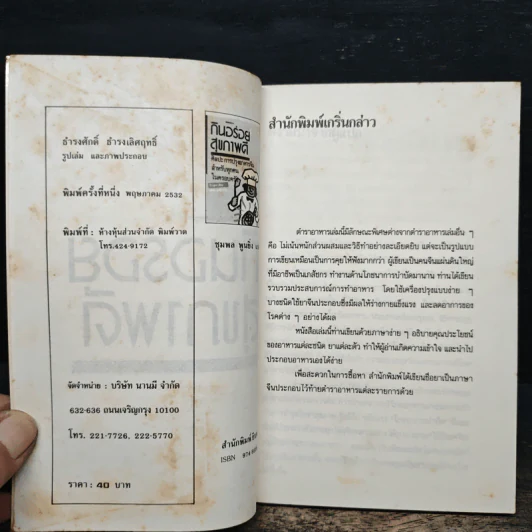 ธำรงศักดิ์ ธำรงเลิศฤทธิ์
รูปเล่ม และภาพประกอบ
พิมพ์ครั้งที่หนึ่ง พฤษภาคม 2532
พิมพ์ที่ : ห้างหุ้นส่วนจำกัด พิมพ์วาด
โทร.424-9172
จัดจำหน่าย : บริษัท นานมี จำกัด
632-636 ถนนเจริญกรุง 10100
โทร. 221-7726, 222-5770
ราคา : 40 บาท
กินอร่อย
สุขภาพดี
ชุมพล
สำนักพิมพ์
ISBN 974
สำนักพิมพ์เกริ่นกล่าว
ตำราอาหารเล่มนี้มีลักษณะพิเศษต่างจากตำราอาหารเล่มอื่น ๆ
คือ ไม่เน้นหนักส่วนผสมและวิธีทำอย่างละเอียดยิบ แต่จะเป็นรูปแบบ
การเขียนเหมือนเป็นการคุยให้ฟังมากกว่า ผู้เขียนเป็นคนจีนแผ่นดินใหญ่
ที่มีอาชีพเป็นเภสัชกร ทำงานด้านโภชนาการบำบัดมานาน ท่านได้เขียน
รวบรวมประสบการณ์การทำอาหาร โดยใช้เครื่องปรุงแบบง่าย ๆ
บางชนิดใช้ยาจีนประกอบซึ่งมีผลให้ร่างกายแข็งแรง และลดอาการของ
โรคต่าง ๆ อย่างได้ผล
หนังสือเล่มนี้ท่านเขียนด้วยภาษาง่าย ๆ อธิบายคุณประโยชน์
ของอาหารแต่ละชนิด ยาแต่ละตัว ทำให้ผู้อ่านเกิดความเข้าใจ และนำไป
ประกอบอาหารเองได้ง่าย
เพื่อสะดวกในการซื้อหา สำนักพิมพ์ได้เขียนชื่อยาเป็นภาษา
จีนประกอบไว้ท้ายตำราอาหารแต่ละรายการด้วย